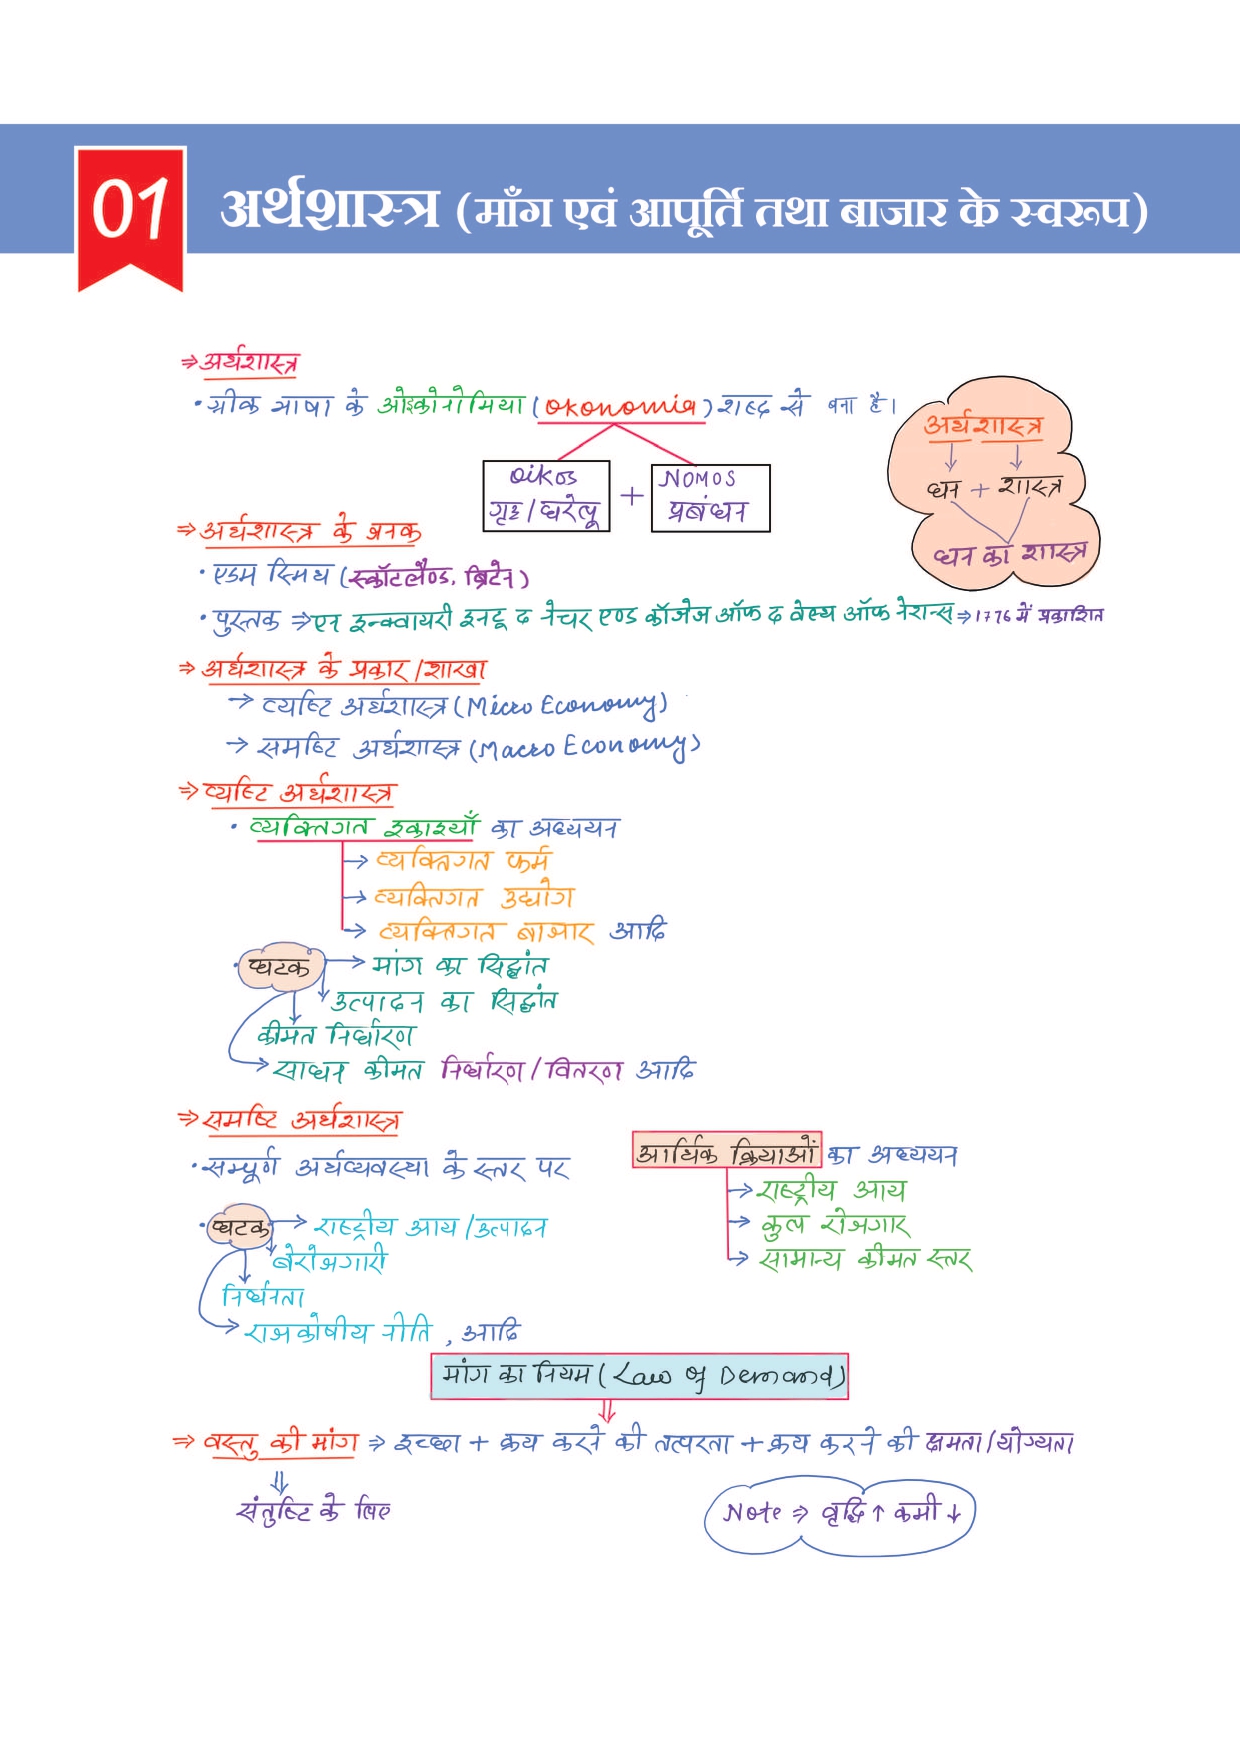 01 अर्थशास्त्र (माँग एवं आपूर्ति तथा बाजार के स्वरूप)
⇒ अर्थशास्त्र
• ग्रीक भाषा के ओइकोनोमिया (Okonomia) शब्द से बना है।
Oikos
गृह/घरेलू
+
NOMOS
प्रबंधन
अर्थशास्त्र
धन + शास्त्र
धन का शास्त्र
⇒ अर्थशास्त्र के जनक
• एडम स्मिथ (स्कॉटलैण्ड, ब्रिटेन)
• पुस्तक ⇒ एन इन्क्वायरी इनटू द नेचर एण्ड कॉजेज ऑफ द वेल्थ ऑफ नेशन्स ⇒ 1776 में प्रकाशित
⇒ अर्थशास्त्र के प्रकार/शाखा
→ व्यष्टि अर्थशास्त्र (Micro Economy)
→ समष्टि अर्थशास्त्र (Macro Economy)
⇒ व्यष्टि अर्थशास्त्र
• व्यक्तिगत इकाइयाँ का अध्ययन
→ व्यक्तिगत फर्म
→ व्यक्तिगत उद्योग
→ व्यक्तिगत बाजार आदि
• घटक → मांग का सिद्धांत
उत्पादन का सिद्धांत
कीमत निर्धारण
→ साधन कीमत निर्धारण/वितरण आदि
⇒ समष्टि अर्थशास्त्र
• सम्पूर्ण अर्थव्यवस्था के स्तर पर आर्थिक क्रियाओं का अध्ययन
→ राष्ट्रीय आय
→ कुल रोजगार
→ सामान्य कीमत स्तर
• घटक → राष्ट्रीय आय/उत्पादन
बेरोजगारी
निर्धनता
→ राजकोषीय नीति, आदि
मांग का नियम (Law of Demand)
⇒ वस्तु की मांग ⇒ इच्छा + क्रय करने की तत्परता + क्रय करने की क्षमता/योग्यता
संतुष्टि के लिए
Note ⇒ वृद्धि ↑ कमी ↓